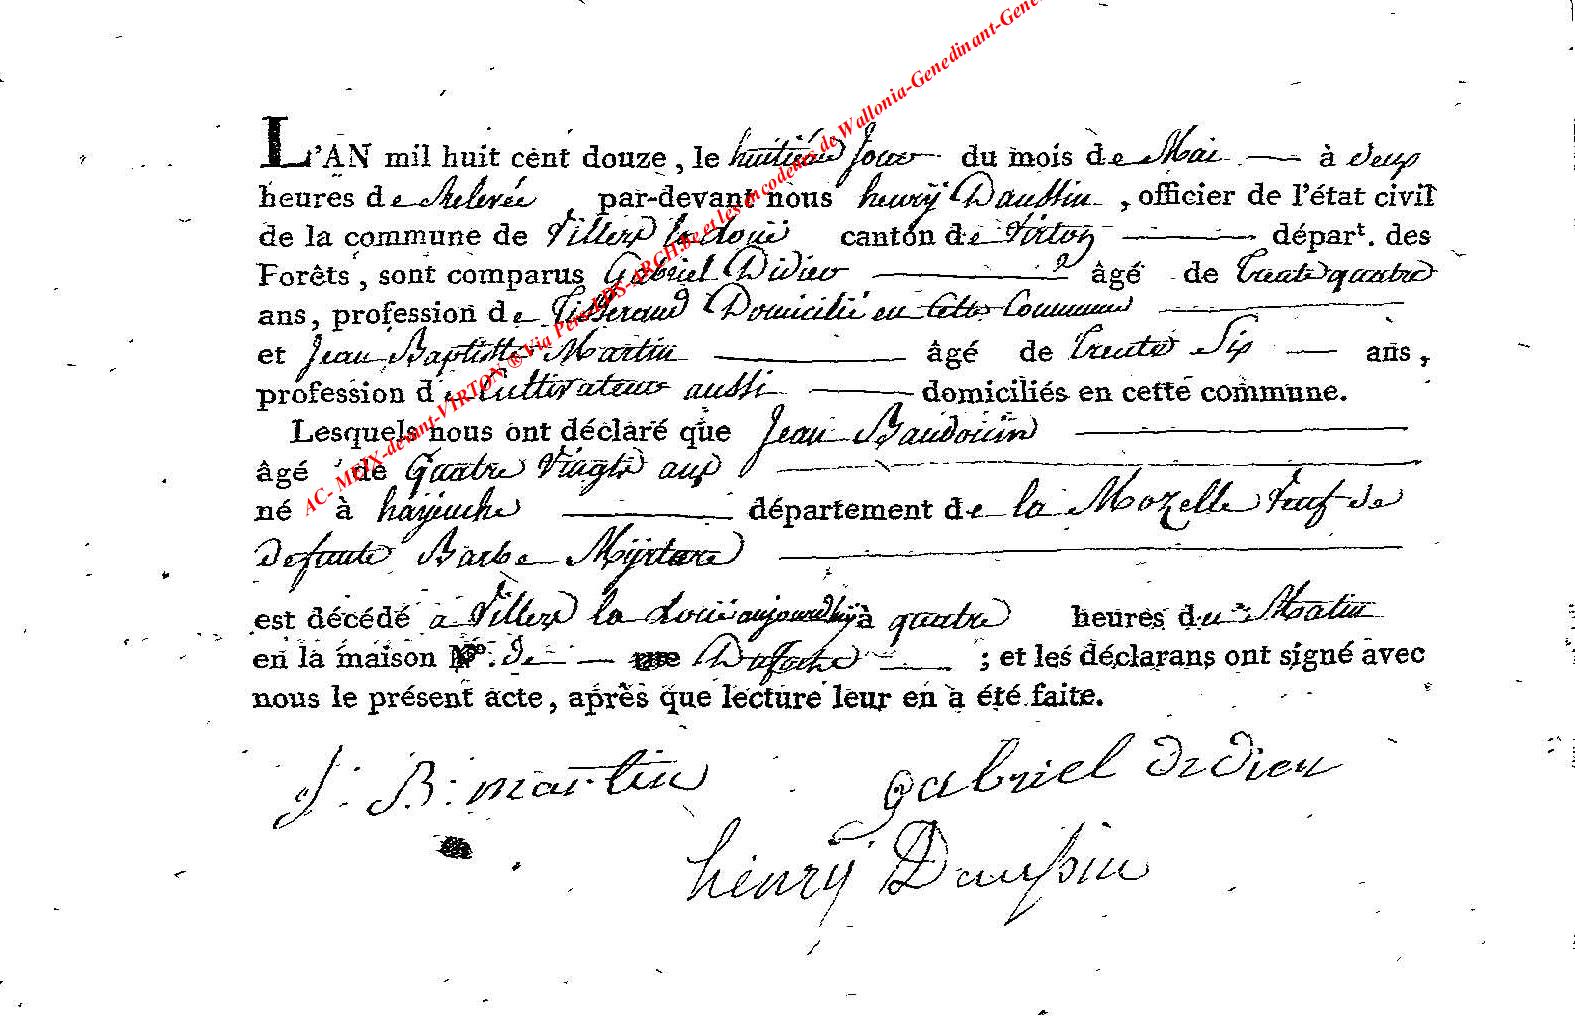 L'AN mil huit cent douze, le huitième Jour du mois de Mai à deux
heures de Relevée par-devant nous henrÿ Daussin, officier de l'état civil
de la commune de Villers la loüe canton de Virton départ. des
Forêts, sont comparus Gabriel Didier âgé de trente quatre
ans, profession de Tisserand Domicilié en Cette Commune
et Jean Baptiste Martin âgé de trente Six ans,
profession de Cultivateur aussi domiciliés en cette commune.
Lesquels nous ont déclaré que Jean Baudouin
âgé de Quatre Vingts ans
né à département de la Mozelle veuf de
defunte Barbe
est décédé a Villers la loüe aujourdhÿ à quatre heures du Matin
en la maison N.º de ; et les déclarans ont signé avec
nous le présent acte, après que lecture leur en à été faite.
J. B. martin gabriel didier
henrÿ Daussin
AC- MEIX-devant-VIRTON ® Via Pers LDS-ARCH.be et les encodeurs de Wallonia-Genedinant-Gene